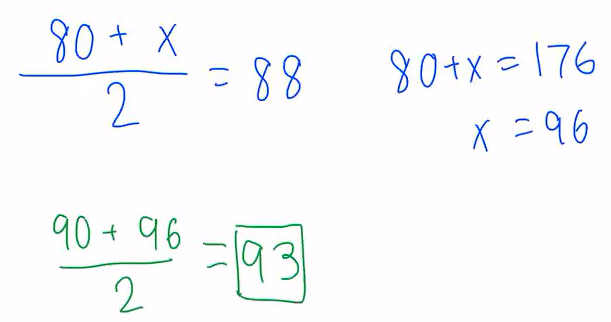 80 + x
2
= 88
80+x = 176
x = 96
90 + 96
2
= 93